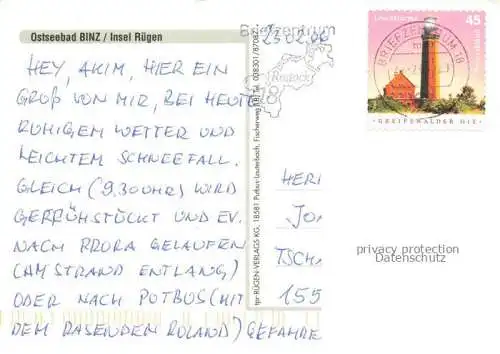 Ostseebad BINZ / Insel Rügen
HEY, AKIM, HIER EIN
GRUß VON MIR, BEI HEUTE
RUHIGEM WETTER UND
LEICHTEM SCHNEEFALL.
GLEICH (9.30 UHR) WIRD
GEFRÜHSTÜCKT UND EV.
NACH PRORA GELAUFEN
(AM STRAND ENTLANG)
ODER NACH PUTBUS (MIT
DEM RASENDEN ROLAND) GEFAHRE
Briefzentrum
23.02.06
Rostock
tpr RÜGEN-VERLAGS KG, 18581 Putbus-Lauterbach, Fischerweg
Leuchttürme
45
BRIEFZENTRUM 18
GREIFSWALDER OIE
HER
JO
TSCH
155
privacy protection
Datenschutz